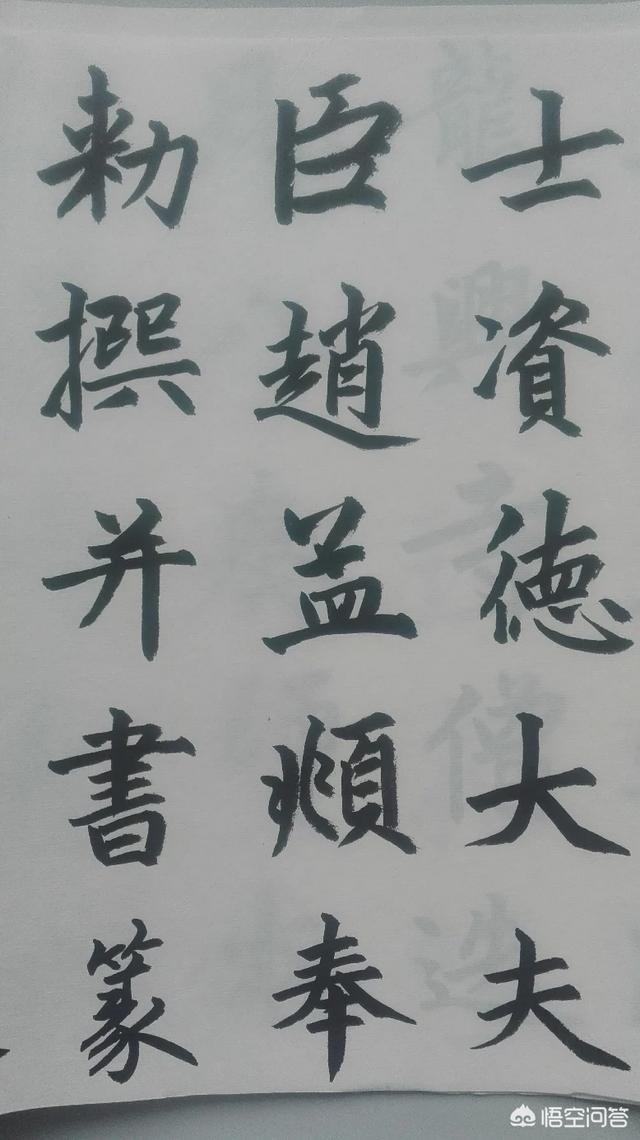 士資德大夫
臣趙益頫奉
勅撰并書篆
悟空问答